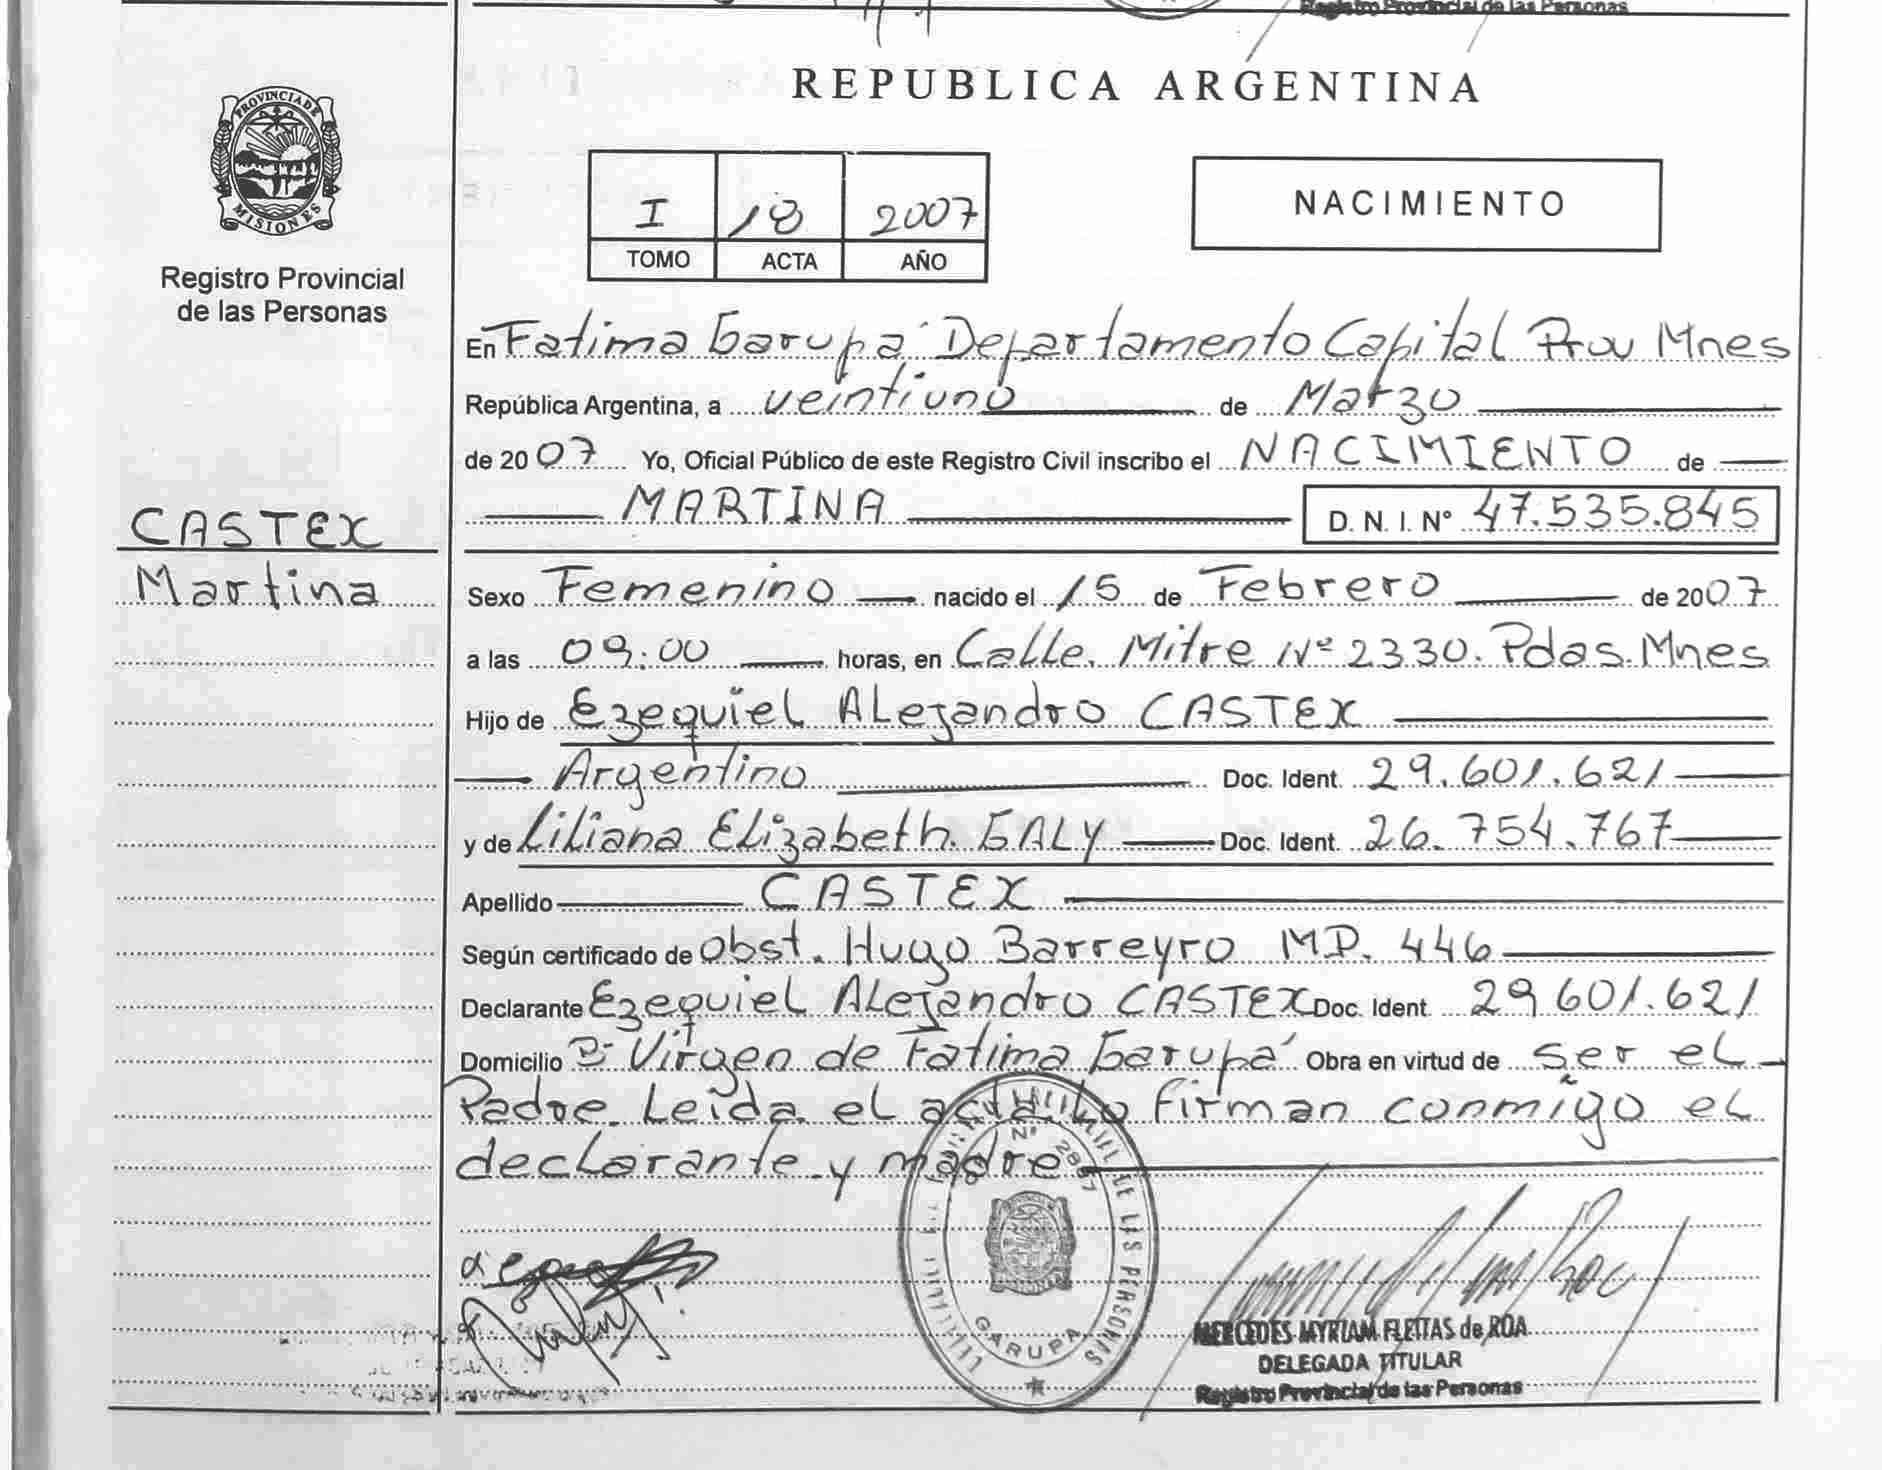 Registro Provincial de las Personas
REPUBLICA ARGENTINA
PROVINCIA DE
MISIONES
Registro Provincial
de las Personas
I 18 2007
TOMO ACTA AÑO
NACIMIENTO
En Fatima Garupá Departamento Capital Prov Mnes
República Argentina, a veintiuno de Marzo
de 2007 Yo, Oficial Público de este Registro Civil inscribo el NACIMIENTO de
MARTINA D. N. I. Nº 47.535.845
CASTEX
Martina
Sexo Femenino nacido el 15 de Febrero de 2007
a las 09:00 horas, en Calle. Mitre Nº 2330. Pdas. Mnes
Hijo de Ezequiel Alejandro CASTEX
Argentino Doc. Ident. 29.601.621
y de Liliana Elizabeth. GALY Doc. Ident. 26.754.767
Apellido CASTEX
Según certificado de Obst. Hugo Barreyro MP. 446
Declarante Ezequiel Alejandro CASTEX Doc. Ident. 29.601.621
Domicilio Bº Virgen de Fatima Garupá Obra en virtud de ser el
Padre. Leida. el acta Lo firman conmigo el
declarante y madre
Nº
DE LAS PERSONAS
GARUPA
MERCEDES MYRIAM FLEITAS de ROA
DELEGADA TITULAR
Registro Provincial de las Personas